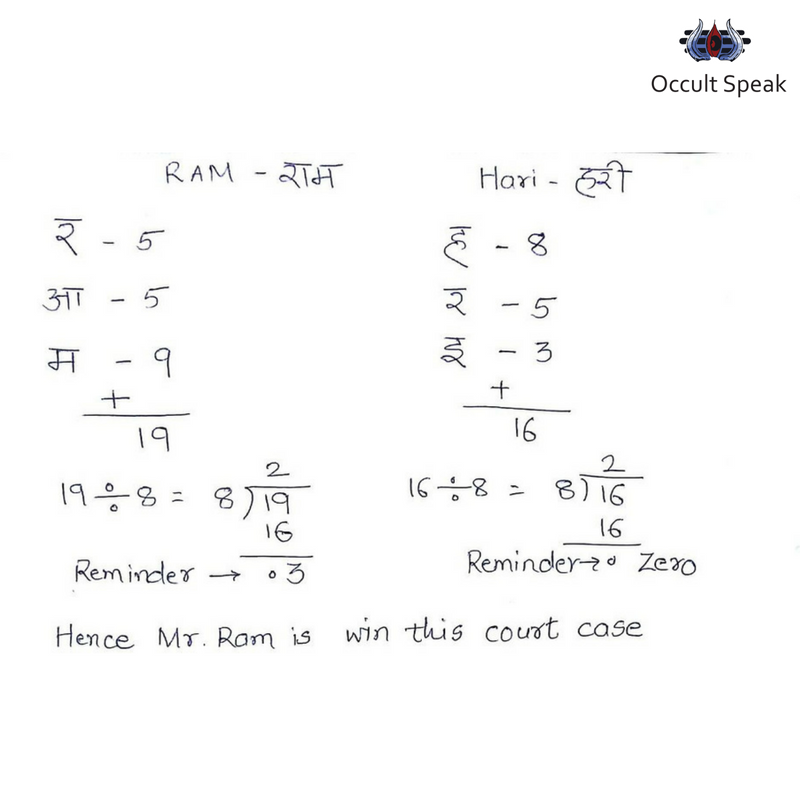 Occult Speak
RAM - राम
र - 5
आ - 5
म - 9
+
19
19 ÷ 8 = 8) 19
2
16
Reminder → 03
Hari - हरी
ह - 8
र - 5
इ - 3
+
16
16 ÷ 8 = 8) 16
2
16
Reminder → 0 Zero
Hence Mr. Ram is win this court case